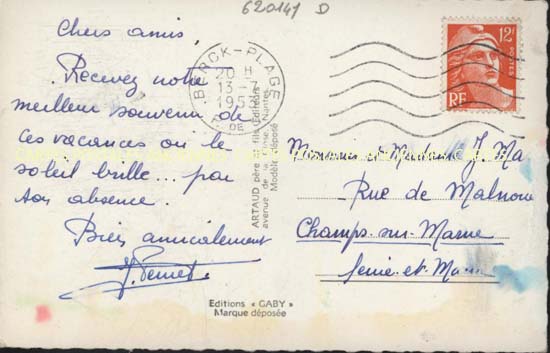 620141 D
Chers amis,
Recevez notre
meilleur souvenir de
ces vacances où le
soleil brille... par
son absence.
Bien amicalement
BERCK-PLAGE
20 H
13-7
195
DE
ARTAUD père et fils Éditeurs
avenue de la Nantes
Modèle déposé
Editions « GABY »
Marque déposée
12F
POSTES
RF
Monsieur et Madame J. Ma
Rue de Malnou
Champs-sur-Marne
Seine-et-Marne